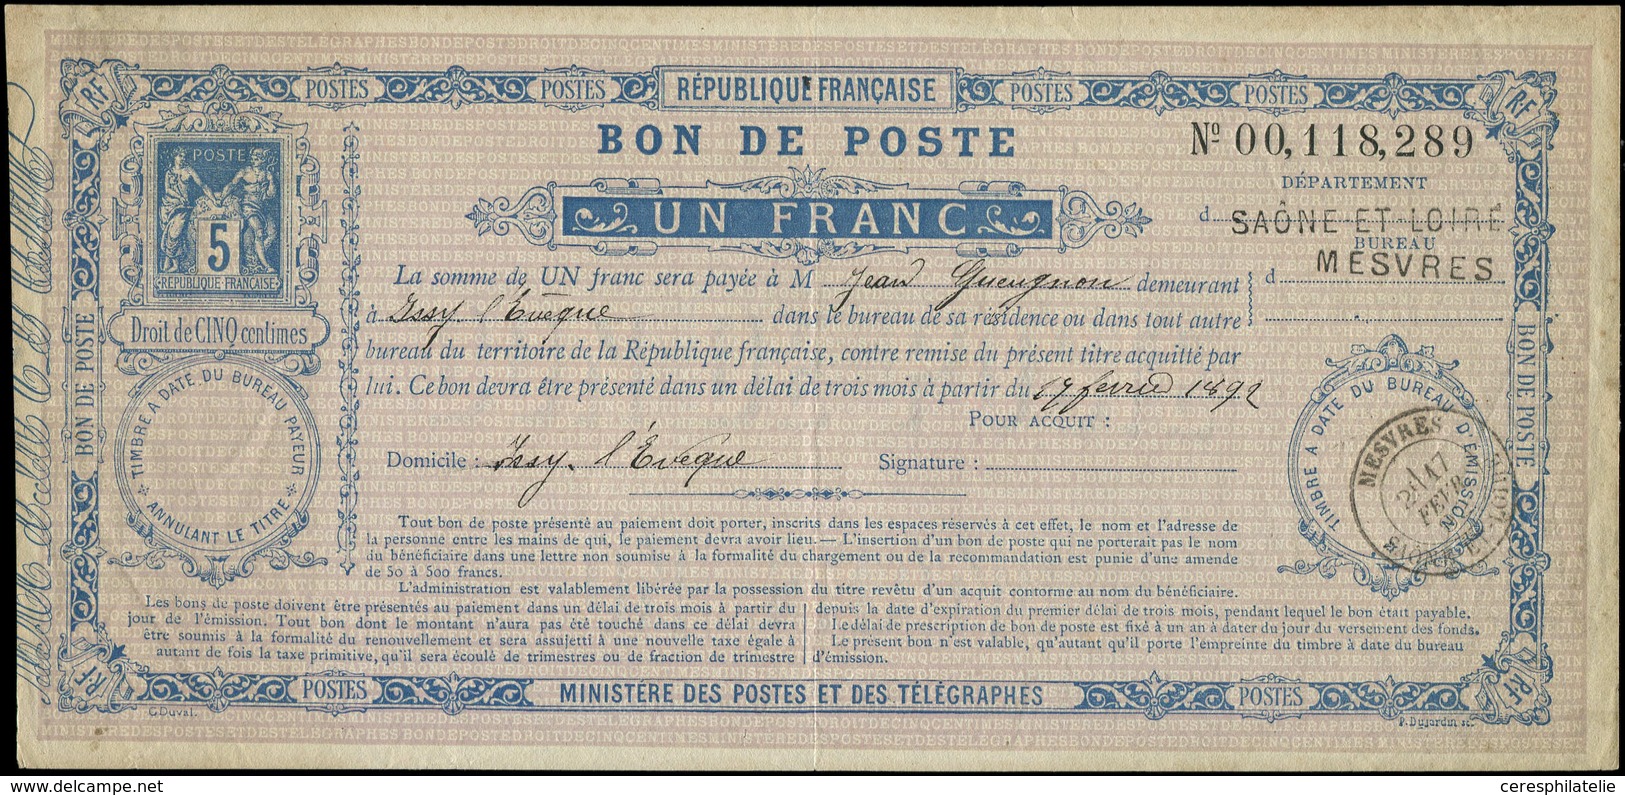 MINISTÈREDESPOSTESETDESTÉLÉGRAPHESBONDEPOSTEDROITDECINQCENTIMES
RF POSTES POSTES RÉPUBLIQUE FRANÇAISE POSTES POSTES RF
BON DE POSTE
Nº 00,118,289
POSTE
5
RÉPUBLIQUE FRANÇAISE
Droit de CINQ centimes
UN FRANC
DÉPARTEMENT
d SAÔNE-ET-LOIRE
BUREAU
d MESVRES
La somme de UN franc sera payée à M Jean Gueugnon demeurant
à Issy l'Evêque dans le bureau de sa résidence ou dans tout autre
bureau du territoire de la République française, contre remise du présent titre acquitté par
lui. Ce bon devra être présenté dans un délai de trois mois à partir du 17 février 1892
POUR ACQUIT :
Domicile : Issy-l'Evêque Signature :
BON DE POSTE
TIMBRE A DATE DU BUREAU PAYEUR
* ANNULANT LE TITRE *
TIMBRE A DATE DU BUREAU D'EMISSION
MESVRES
17
FEVR
BON DE POSTE
Tout bon de poste présenté au paiement doit porter, inscrits dans les espaces réservés à cet effet, le nom et l'adresse de
la personne entre les mains de qui, le paiement devra avoir lieu. — L'insertion d'un bon de poste qui ne porterait pas le nom
du bénéficiaire dans une lettre non soumise à la formalité du chargement ou de la recommandation est punie d'une amende
de 50 à 500 francs.
L'administration est valablement libérée par la possession du titre revêtu d'un acquit conforme au nom du bénéficiaire.
Les bons de poste doivent être présentés au paiement dans un délai de trois mois à partir du
jour de l'émission. Tout bon dont le montant n'aura pas été touché dans ce délai devra
être soumis à la formalité du renouvellement et sera assujetti à une nouvelle taxe égale à
autant de fois la taxe primitive, qu'il sera écoulé de trimestres ou de fraction de trimestre
depuis la date d'expiration du premier délai de trois mois, pendant lequel le bon était payable.
Le délai de prescription de bon de poste est fixé à un an à dater du jour du versement des fonds.
Le présent bon n'est valable, qu'autant qu'il porte l'empreinte du timbre à date du bureau
d'émission.
RF POSTES MINISTÈRE DES POSTES ET DES TÉLÉGRAPHES POSTES RF
C. Duval. P. Dujardin sc.
ceresphilatelie